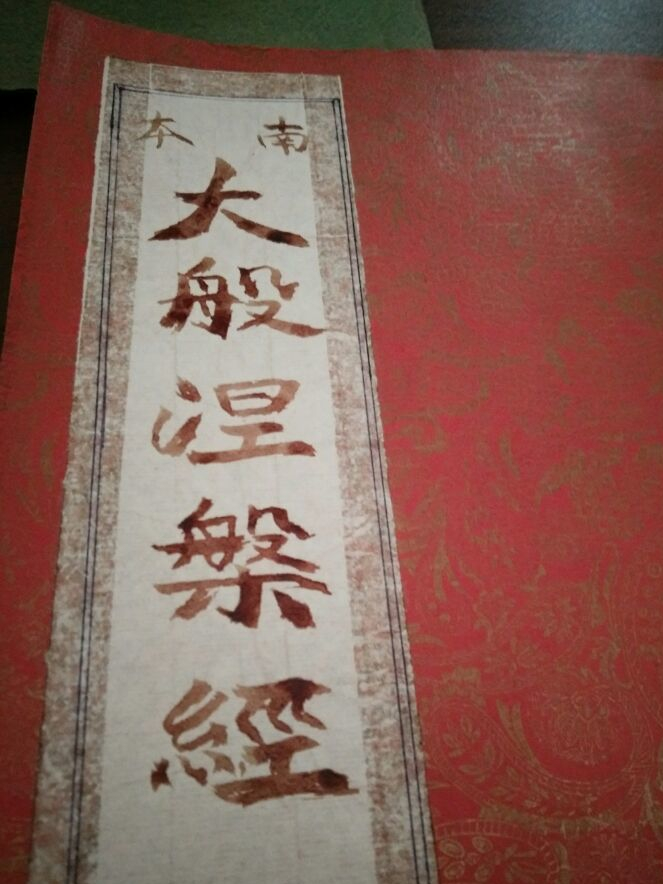 南本
大般涅槃經